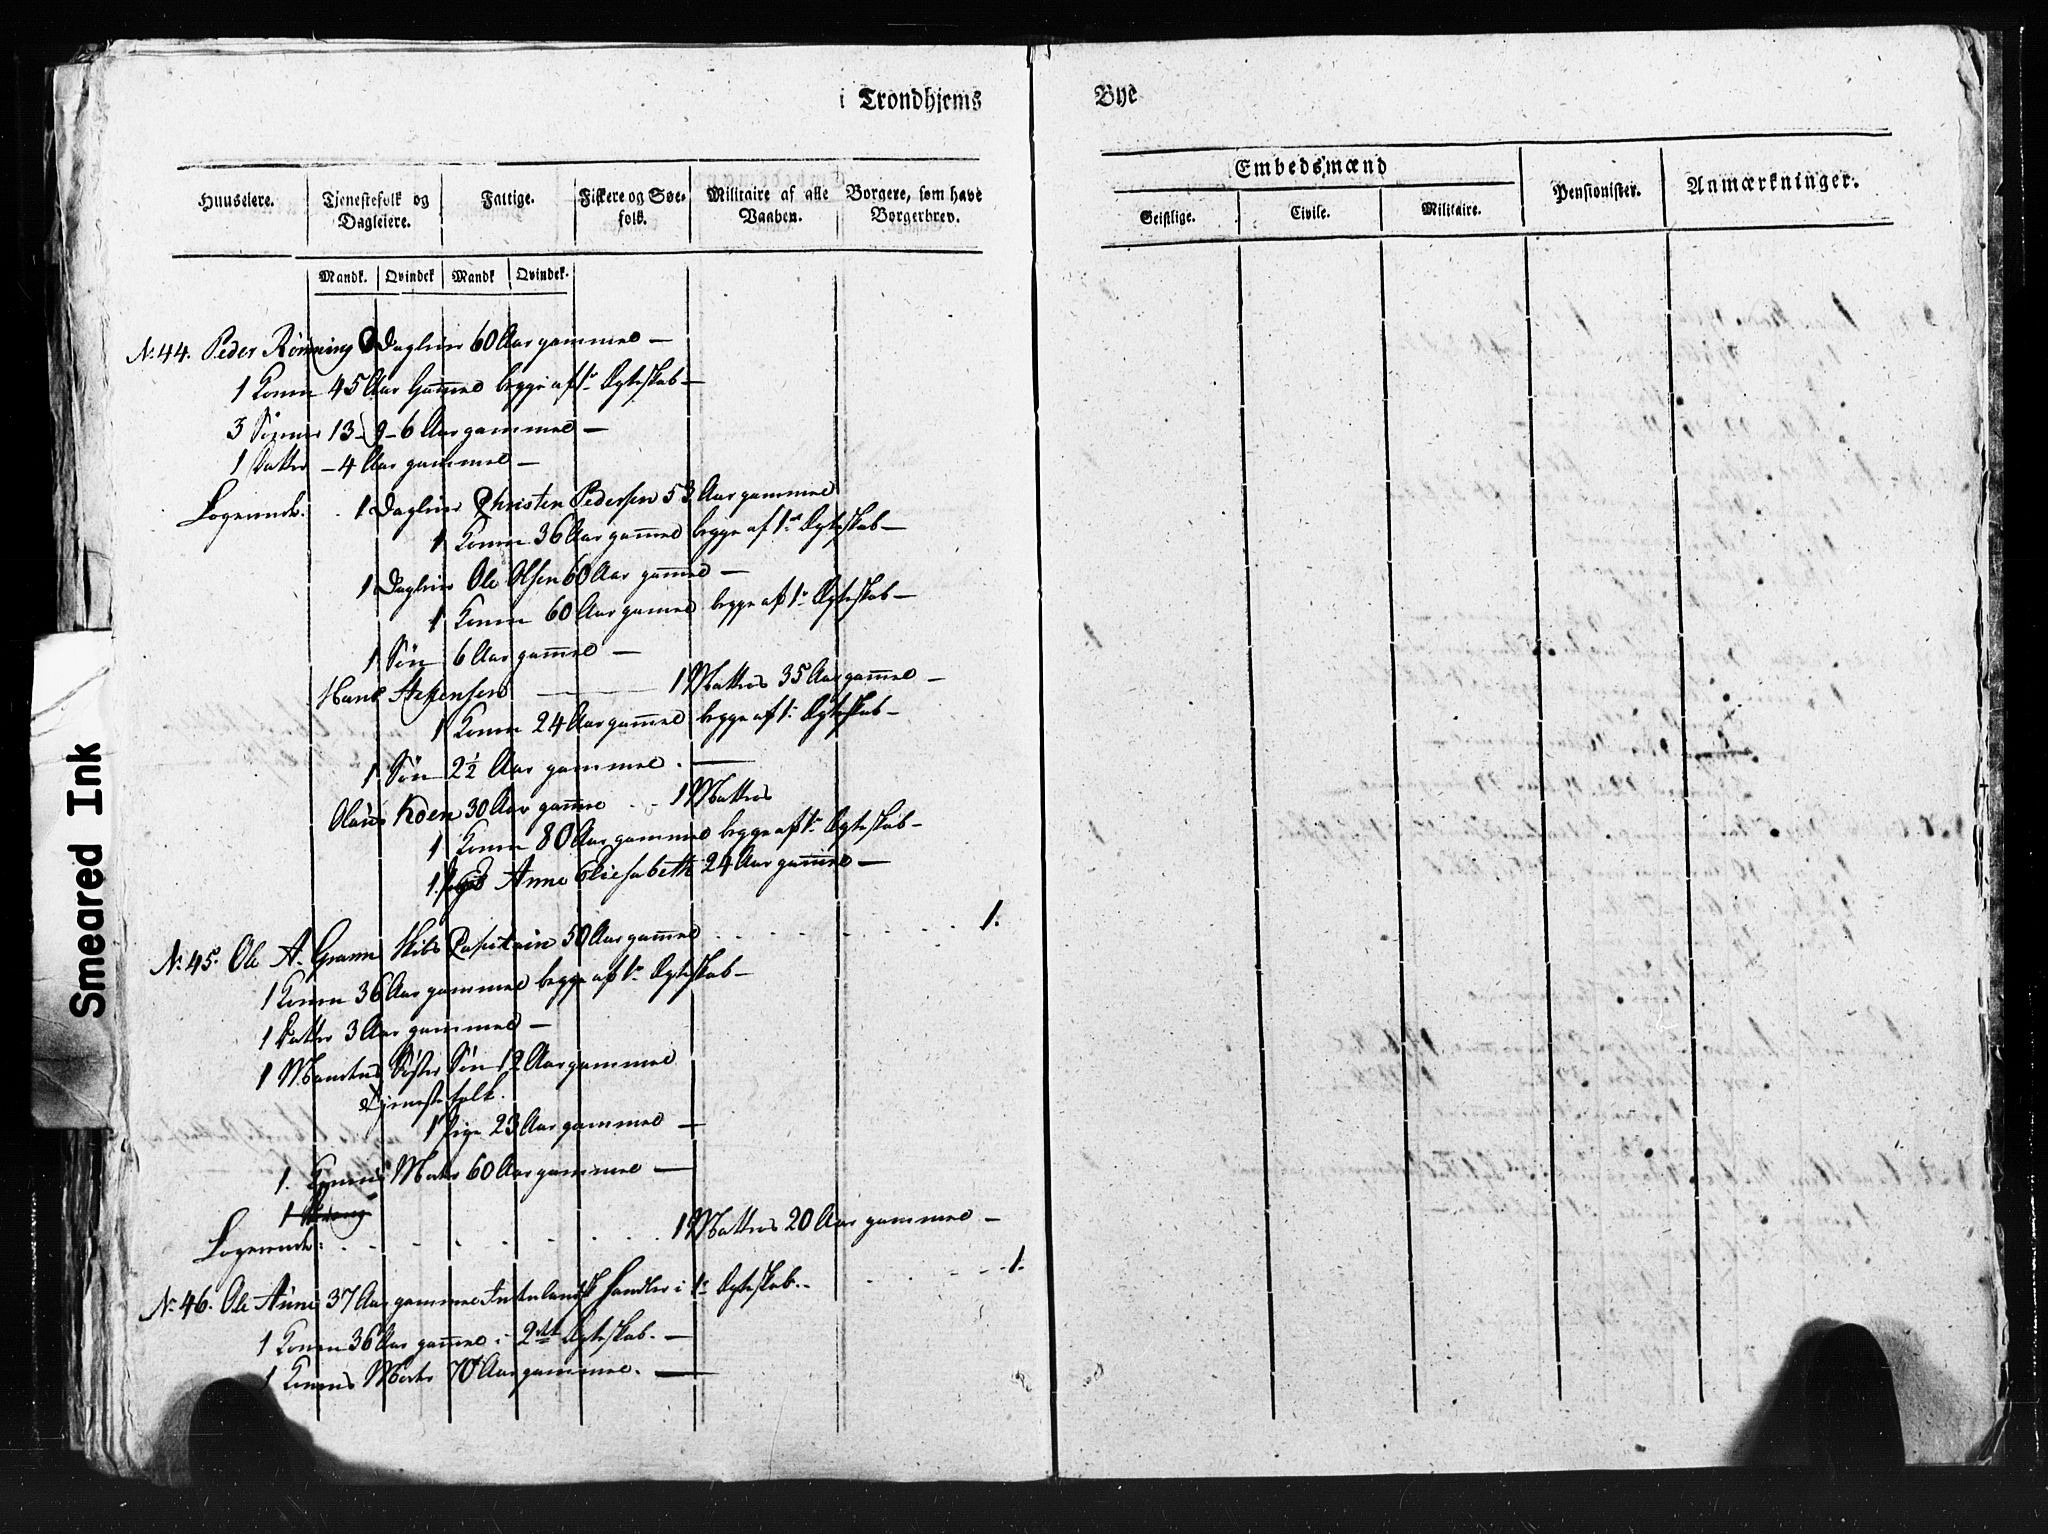 i Trondhjems Bye
Huuseiere. Tjenestefolk og Dagleiere. Fattige. Fiskere og Søefolk. Militaire af alle Vaaben. Borgere, som have Borgerbrev.
Mandk. Qvindek Mandk Qvindek.
Embedsmænd
Geistlige. Civile. Militaire. Pensionister. Anmærkninger.
No. 44. Peder Rönning Dagleier 60 Aar gammel —
1 Konen 45 Aar Gammel begge af 1te Egteskab —
3 Sönner 13 - 9 - 6 Aar gammel —
1 Datter — 4 Aar gammel —
Logerende. 1 Dagleier Christen Pedersen 53 Aar gammel
1 Konen 36 Aar gammel begge af 1te Egteskab —
1 Dagleier Ole Olsen 60 Aar gammel —
1 Konen 60 Aar gammel begge af 1te Egteskab —
1 Sön 6 Aar gammel —
Hans Stephensen — 1 Matros 35 Aar gammel —
1 Konen 24 Aar gammel begge af 1te Egteskab —
1 Sön 2½ Aar gammel . —
Olaus 30 Aar gamme . . 1 Matros
1 Konen 80 Aar gammel begge af 1te Egteskab —
1. Anne Eliesabeth 24 Aar gammel —
No. 45. Ole A. Gramn Skibs Capitain 50 Aar gammel . . . . . 1.
1 Konen 36 Aar gammel begge af 1te Egteskab —
1 Datter 3 Aar gammel —
1 Mandens Söster Sön 12 Aar gammel
Tjenestefolk.
1 Pige 23 Aar gammel —
1. Konens Moder 60 Aar gammel —
Logerende: . . . . . 1 Matros 20 Aar gammel —
No. 46. Ole Aune 37 Aar gammel Intenlandsk Handler i 1te Egteskab. . . . . 1.
1 Konen 36 Aar gammel i 2det Egteskab. —
1 Konens Moder 70 Aar gammel. —
Smeared Ink